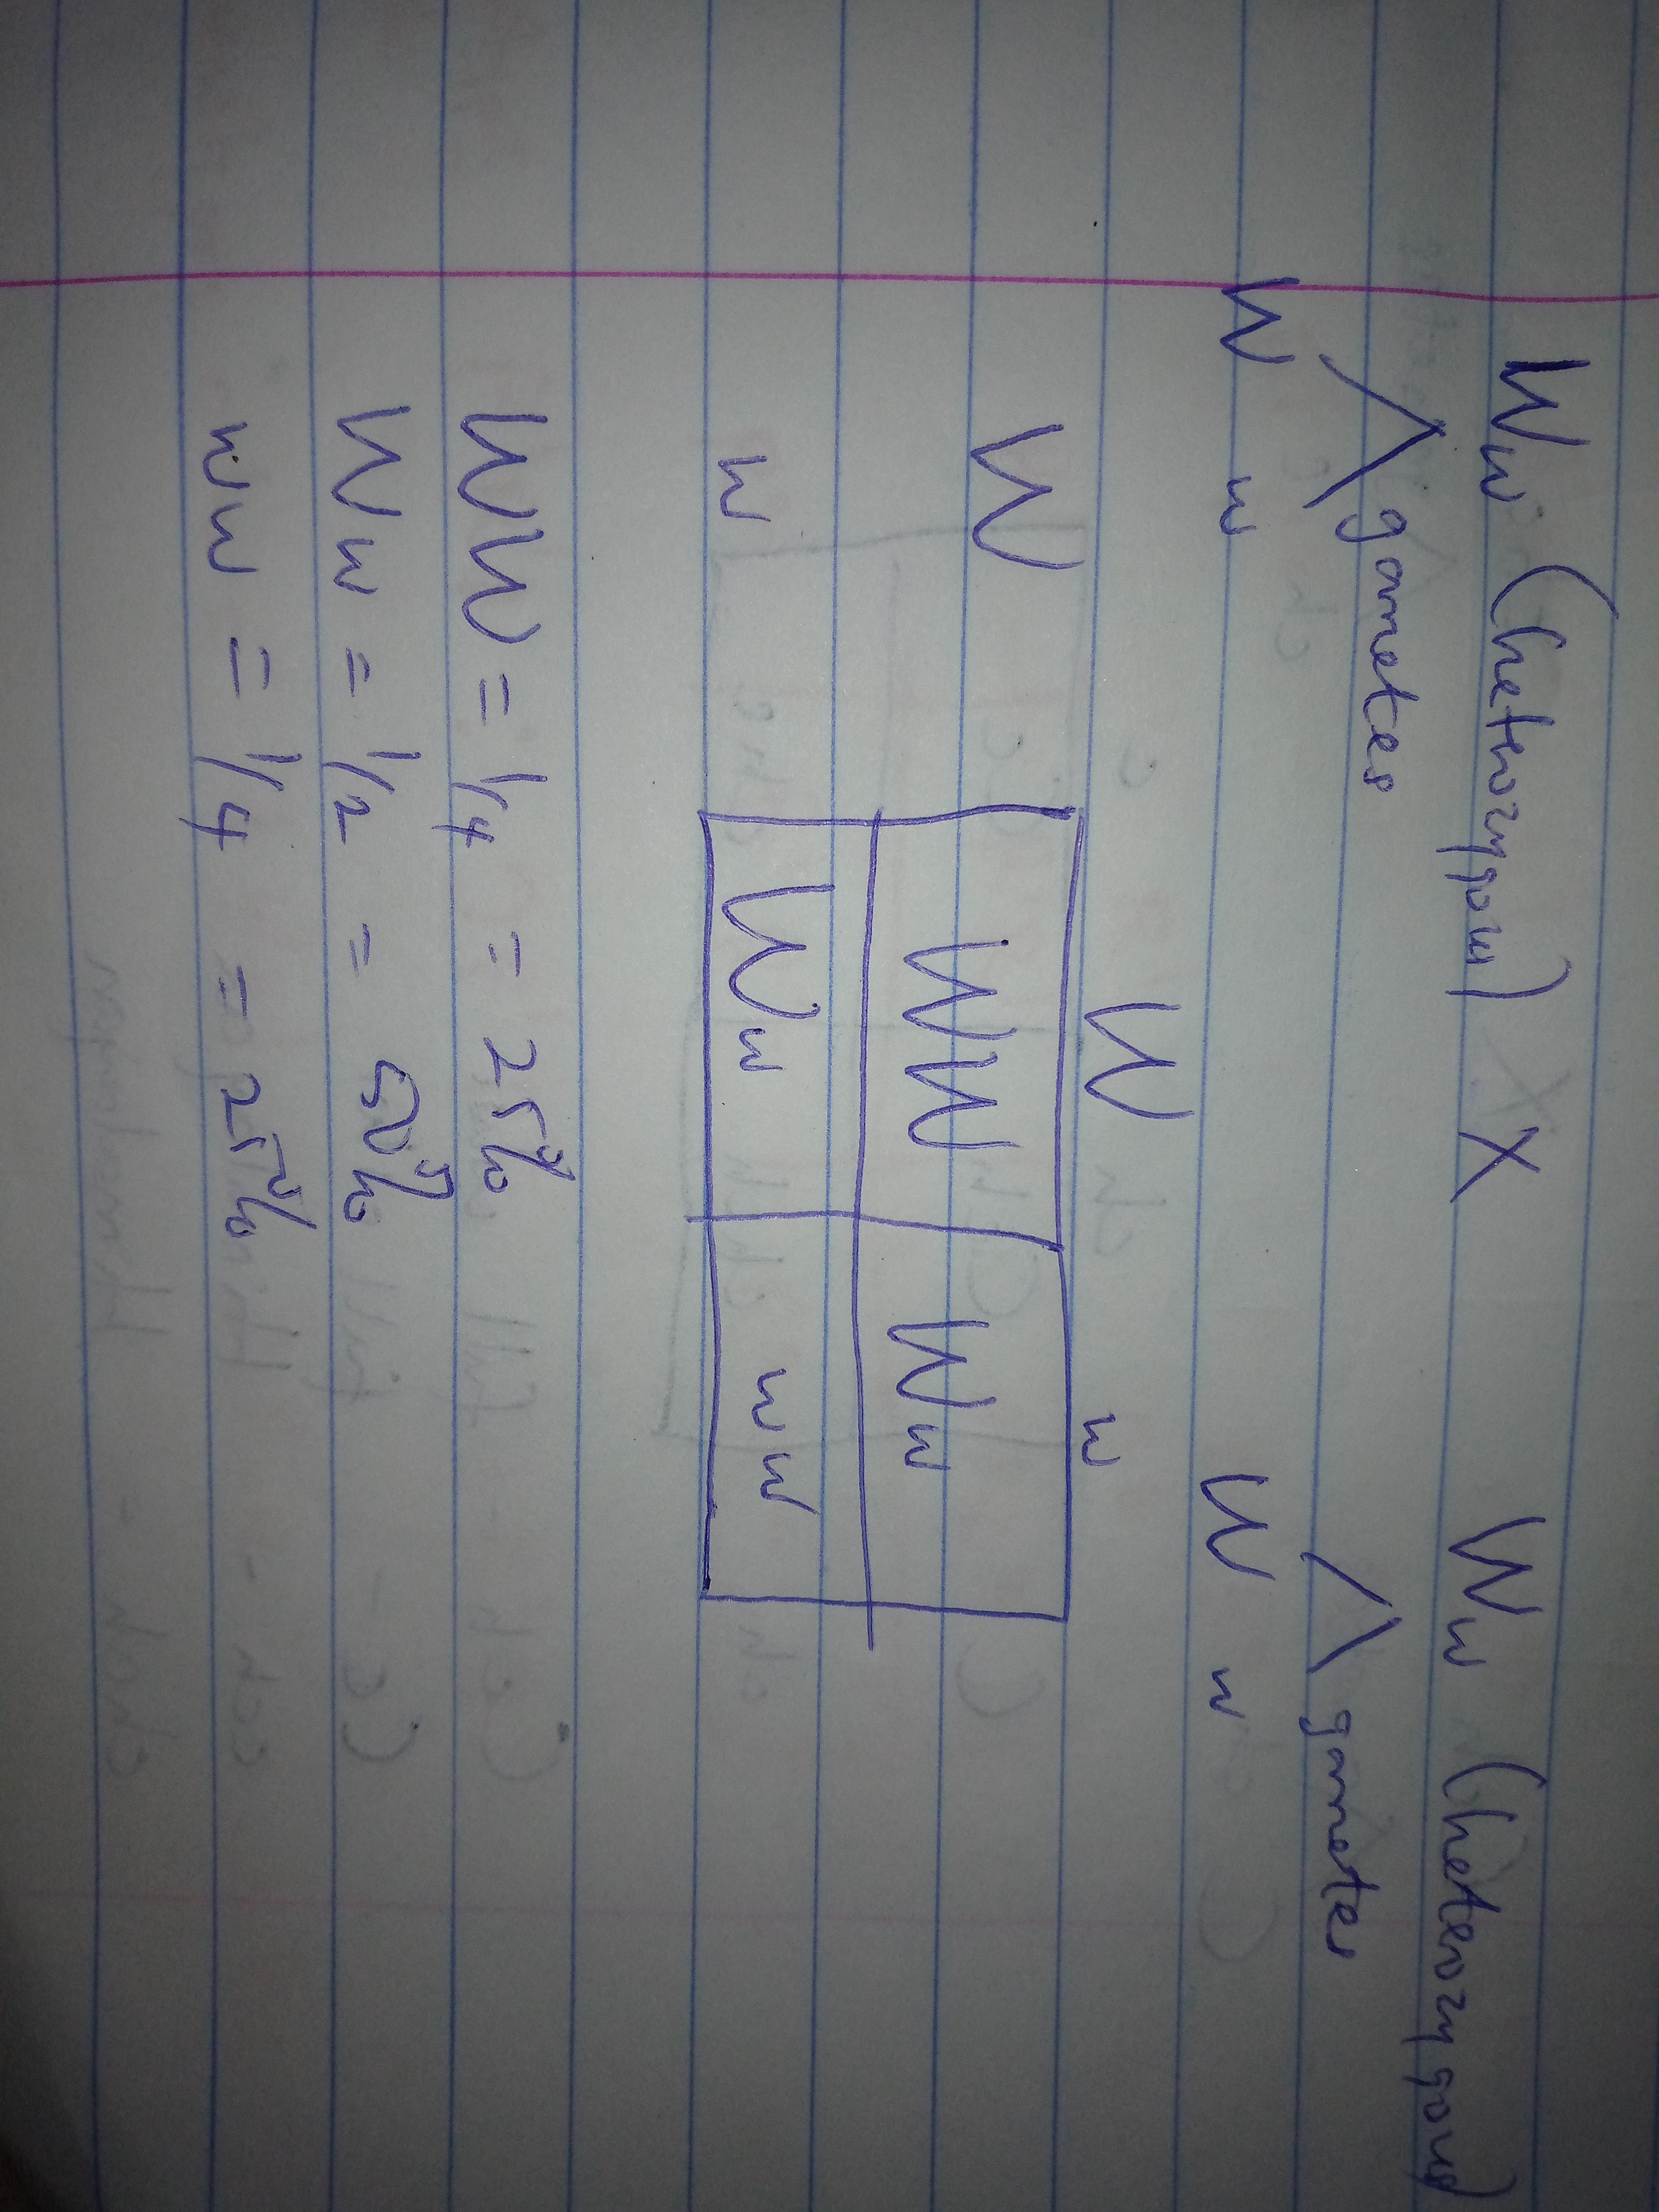 Ww (heterozygous) X Ww (heterozygous)
gametes gametes
W w W w
W w
W WW Ww
w Ww ww
WW = 1/4 = 25%
Ww = 1/2 = 50%
ww = 1/4 = 25%